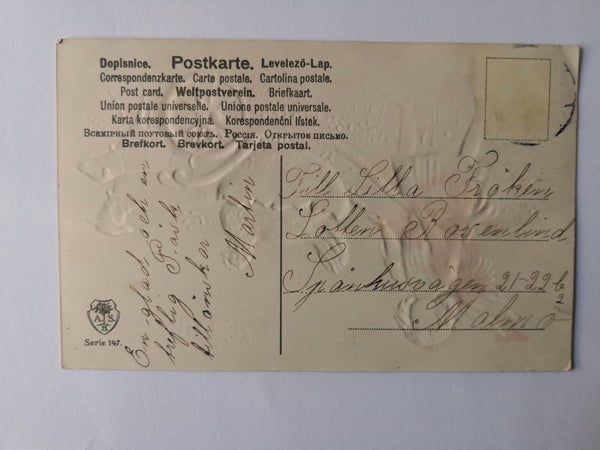 Dopisnice. Postkarte. Levelező-Lap.
Correspondenzkarte. Carte postale. Cartolina postale.
Post card. Weltpostverein. Briefkaart.
Union postale universelle. Unione postale universale.
Karta korespondencyjna. Korespondenční lístek.
Всемірный почтовый союзъ. Россія. Открытое письмо.
Brefkort. Brevkort. Tarjeta postal.
En glad och en
treflig Påsk
tillönskar
Martin
Till Lilla Fröken
Lotten Rosenlind
Spånhusvägen 21-22 b
Malmö
A S
B
Serie 147.